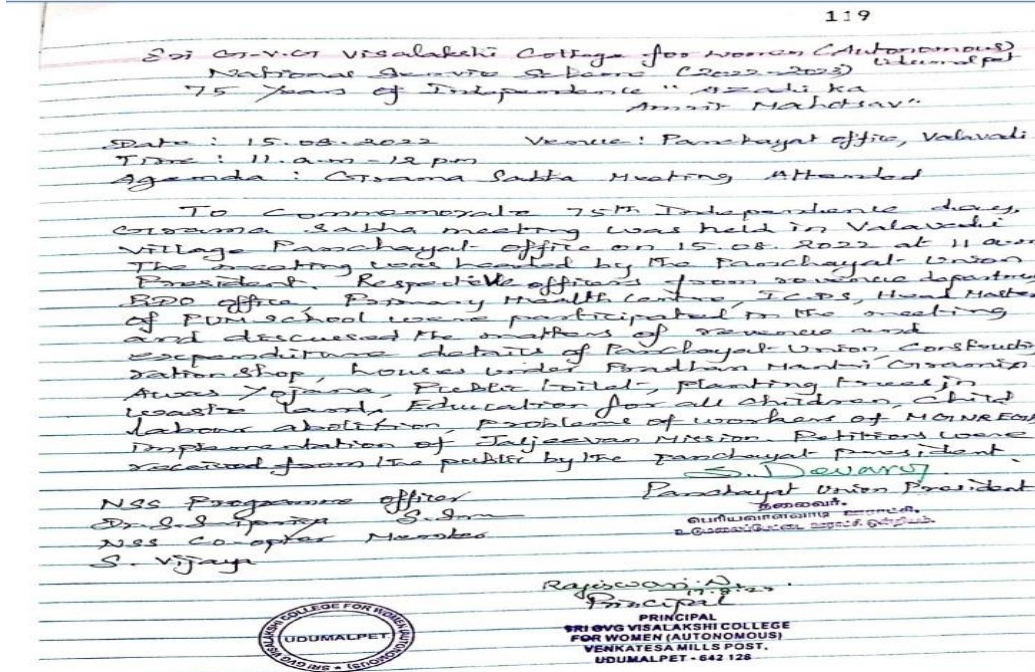 119
Sri G.V.G Visalakshi College for women (Autonomous)
Udumalpet
National Service Scheme (2022-2023)
75 Years of Independence "Azadi ka
Amrit Mahotsav"
Date : 15.08.2022 Venue : Panchayat office, Valavadi
Time : 11.a.m - 12 pm
Agenda : Grama Sabha Meeting Attended
To commemorate 75th Independence day,
Grama Sabha meeting was held in Valavadi
Village Panchayat office on 15.08.2022 at 11 a.m
The meeting was headed by the Panchayat Union
President. Respective officers from revenue departmen
BDO office, Primary Health Centre, ICDS, Head Maste
of PUM school were participated in the meeting
and discussed the matters of revenue and
expenditure details of Panchayat Union, Constructi
ration shop, houses under Pradhan Mantri Gramin
Awas Yojana, Public toilet, planting trees in
waste land, Education for all children, child
labour abolition, problems of workers of MGNREGA
implementation of Jaljeevan Mission. Petitions were
received from the public by the panchayat president.
S. Devaraj
NSS Programme officer Panchayat Union President
Dr.S.Sripriya
தலைவர்.
பெரியவாளவாடி ஊராட்சி.
உடுமலைப்பேட்டை ஊராட்சி ஒன்றியம்.
NSS Co-opter Member
S. Vijaya
Rajeswari.N
Principal
PRINCIPAL
SRI GVG VISALAKSHI COLLEGE
FOR WOMEN (AUTONOMOUS)
VENKATESA MILLS POST.
UDUMALPET - 642 128
SRI GVG VISALAKSHI COLLEGE FOR WOMEN (AUTONOMOUS)
UDUMALPET